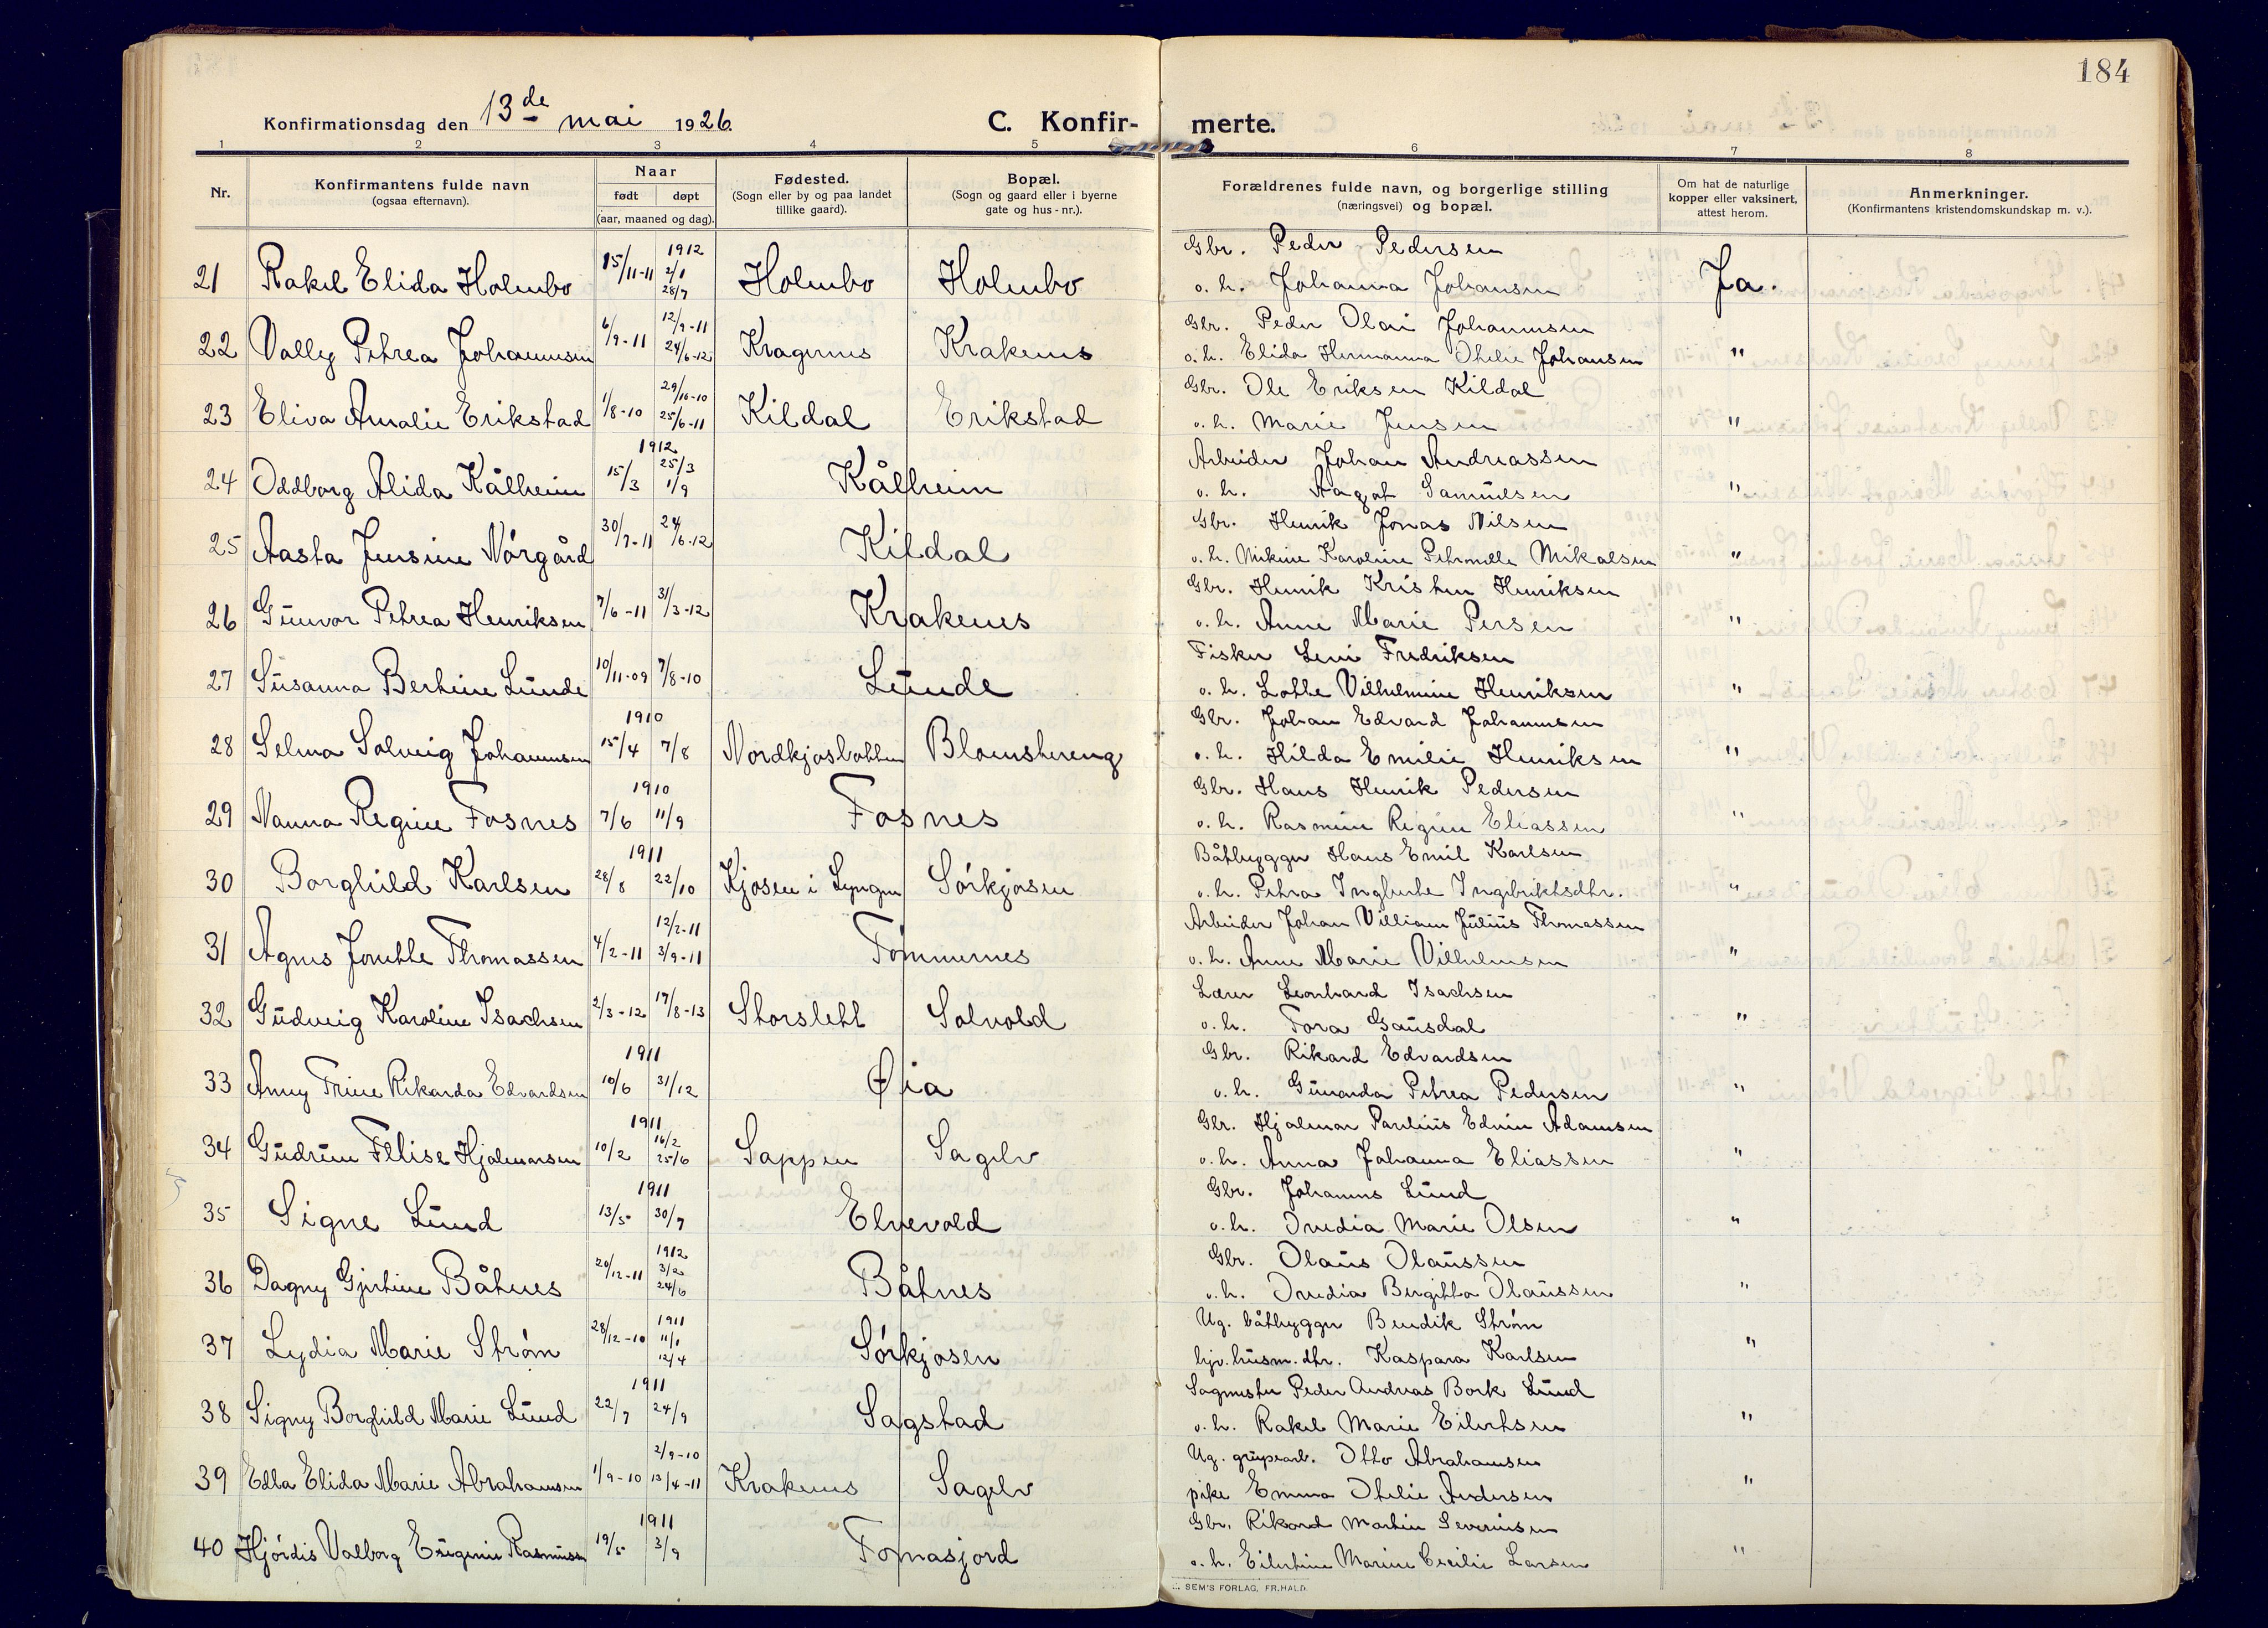 184
Konfirmationsdag den 13de mai 1926.
C. Konfir- merte.
1 2 3 4 5 6 7 8
Nr.
Konfirmantens fulde navn
(ogsaa efternavn).
Naar
født døpt
(aar, maaned og dag).
Fødested.
(Sogn eller by og paa landet
tillike gaard).
Bopæl.
(Sogn og gaard eller i byerne
gate og hus-nr.).
Forældrenes fulde navn, og borgerlige stilling
(næringsvei) og bopæl.
Om hat de naturlige
kopper eller vaksinert,
attest herom.
Anmerkninger.
(Konfirmantens kristendomskundskap m. v.).
1912
Gbr. Peder Pedersen
21 Rakel Elida Holmbo 15/11-11 2/1 28/7 Holmbo Holmbo o. h. Johanna Johansen Ja.
12/9-11 Gbr. Peder Olai Johannesen
22 Vally Petrea Johannesen 6/9-11 24/6-12 Kragernes Krakenes o. h. Elida Hermanna Otelie Johansen "
29/10-10 Gbr. Ole Eriksen Kildal
23 Eliva Amalie Erikstad 1/8-10 25/6-11 Kildal Erikstad o. h. Marie Jensen "
1912 Arbeider Johan Andreassen
24 Oddborg Alida Kålheim 15/3 25/3 1/9 Kålheim o. h. Aagot Samuelsen "
Gbr. Henrik Jonas Nilsen
25 Aasta Jensine Nórgård 30/7-11 24/6-12 Kildal o. h. Mikine Karoline Petronelle Mikalsen "
Gbr. Henrik Kristen Henriksen
26 Gunvor Petrea Henriksen 7/6-11 31/3-12 Krakenes o. h. Anne Marie Persen "
Fisker Leni Fredriksen
27 Susanna Bertine Lunde 10/11-09 7/8-10 Lunde o. h. Lotte Vilhelmine Henriksen "
1910 Gbr. Johan Edvard Johannesen
28 Selma Solveig Johannesen 15/4 7/8 Nordkjosbotten Blomstereng o. h. Hilda Emilie Henriksen "
1910 Gbr. Hans Henrik Pedersen
29 Nanna Regine Fosnes 7/6 11/9 Fosnes o. h. Rasmine Regine Eliassen "
1911 Båtbygger Hans Emil Karlsen
30 Borghild Karlsen 28/8 22/10 Kjosen i Lyngen Sórkjosen o. h. Petra Ingberte Ingebriktsdtr. "
12/2-11 Arbeider Johan Villiam Julius Thomassen
31 Agnes Jonette Thomassen 4/2-11 3/9-11 Tómmernes o. h. Anne Marie Vilhelmsen "
Lærer Leonhard Isachsen
32 Gudveig Karoline Isachsen 2/3-12 17/8-13 Storslett Solvold o. h. Tora Gausdal "
1911 Gbr. Rikard Edvardsen
33 Anny Trine Rikarda Edvardsen 10/6 31/12 Øia o. h. Gunarda Petrea Pedersen "
1911 Gbr. Hjalmar Paulius Edvin Adamsen
34 Gudrun Ellise Hjalmarsen 10/2 16/2 25/6 Sappen Sagelv o. h. Anna Johanna Eliassen "
1911 Gbr. Johannes Lund
35 Signe Lund 13/5 30/7 Elvevold o. h. Ovedia Marie Olsen "
1912 Gbr. Olaus Olaussen
36 Dagny Gjertine Båtnes 20/12-11 3/2 24/6 Båtnes o. h. Ovedia Bergitta Olaussen "
1911 Ug. båtbygger Bendik Stróm
37 Lydia Marie Stróm 28/12-10 11/1 12/4 Sórkjosen hjv. husm. dtr. Kaspara Karlsen "
1911 Sagmester Peder Andreas Bork Lund
38 Signy Borghild Marie Lund 22/7 24/9 Sagstad o. h. Rakel Marie Eilertsen "
2/9-10 Ug. grupearb. Otto Abrahamsen
39 Edla Elida Marie Abrahamsen 1/9-10 13/4-11 Krakenes Sagelv pike Emma Otelie Andersen "
1911 Gbr. Rikard Martin Severinsen
40 Hjórdis Valborg Eugenie Rasmussen 19/5 3/9 Tomasjord o. h. Eilertine Marine Cecilie Larsen "
SEM'S FORLAG, FR.HALD.